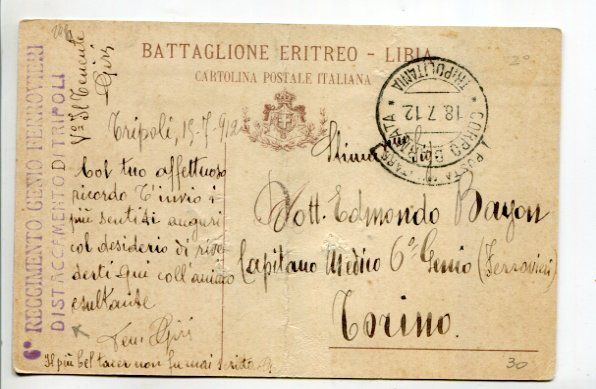 BATTAGLIONE ERITREO - LIBIA
CARTOLINA POSTALE ITALIANA
6° REGGIMENTO GENIO FERROVIERI
DISTACCAMENTO DI TRIPOLI
V° Il Tenente
POSTA MILITARE
CORPO D'ARMATA * TRIPOLITANIA *
18.7.12
Tripoli, 15-7-912
Col tuo affettuoso
ricordo t'invio i
più sentiti auguri
col desiderio di rive
derti qui coll'animo
esultante
Il più bel tacer non fu mai scritto
Dott. Edmondo Bayon
Capitano Medico 6° Genio (Ferrovieri)
Torino.
30